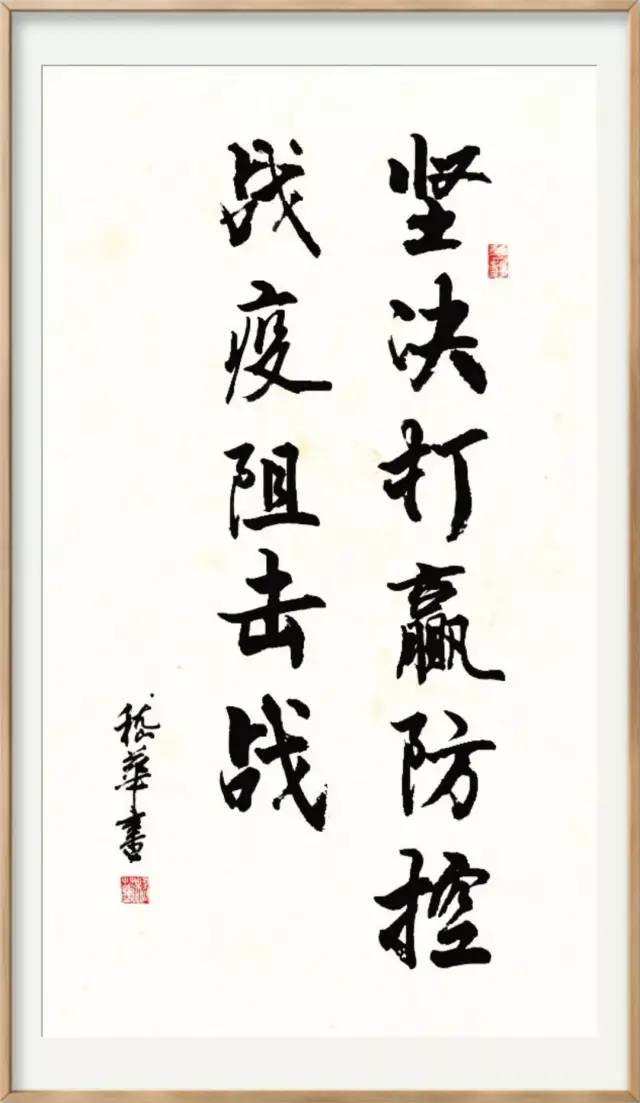 坚决打赢防控
战疫阻击战
嵇華書